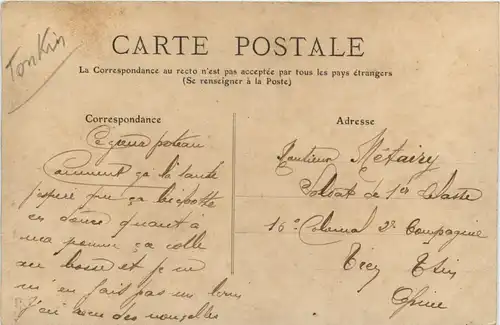 Tonkin
CARTE POSTALE
La Correspondance au recto n'est pas acceptée par tous les pays étrangers
(Se renseigner à la Poste)
Correspondance
Adresse
Comment ça la santé
j'espère que ça
en douce quant à
ma pomme ça colle
au et je
m'en fait pas un
J'ai des nouvelles
Monsieur Métairy
Soldat de 1er Classe
16e Colonial 2e Compagnie
Tien Tsin
Chine